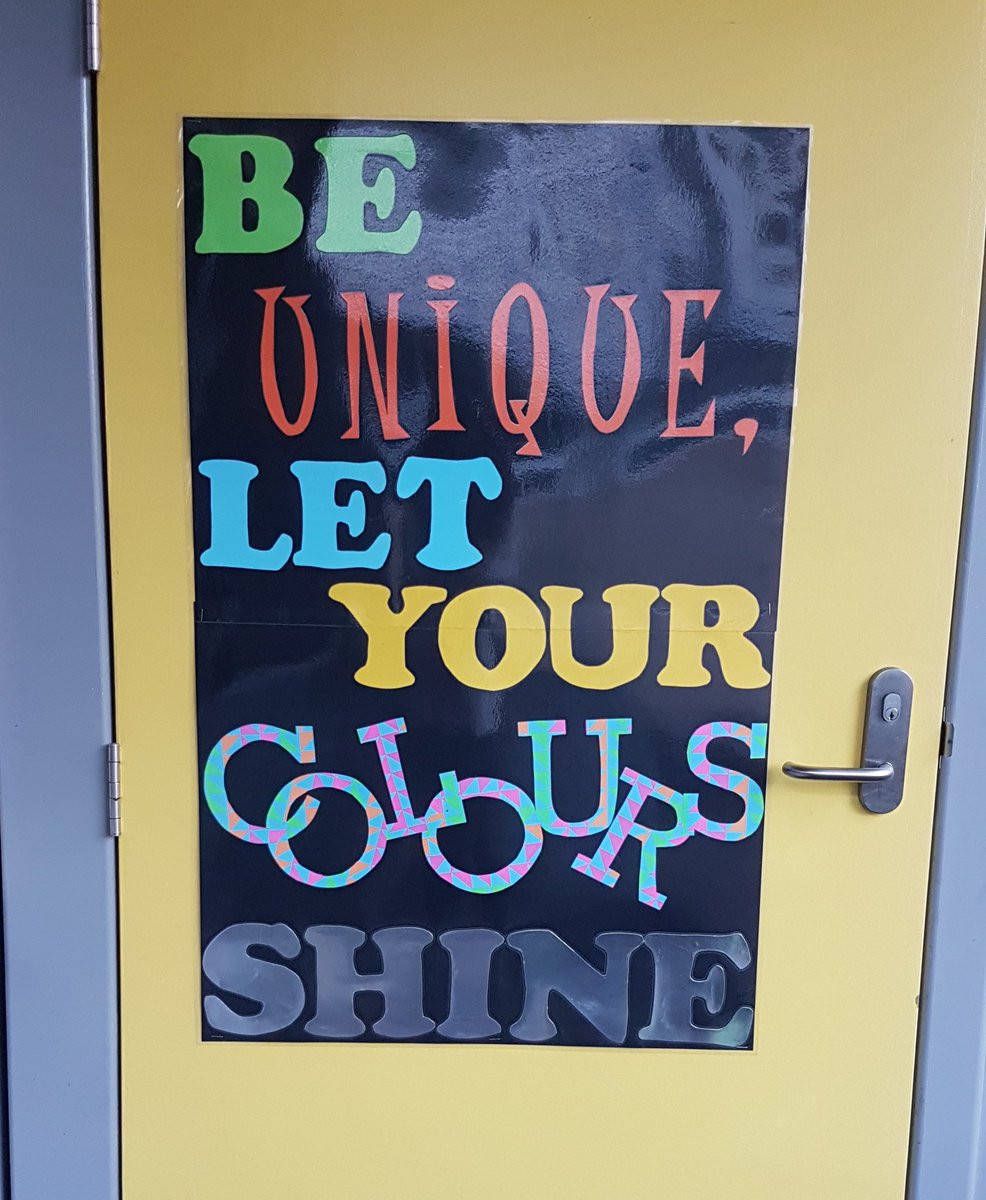 BE
UNiQUE,
LET
YOUR
COLOURS
SHINE